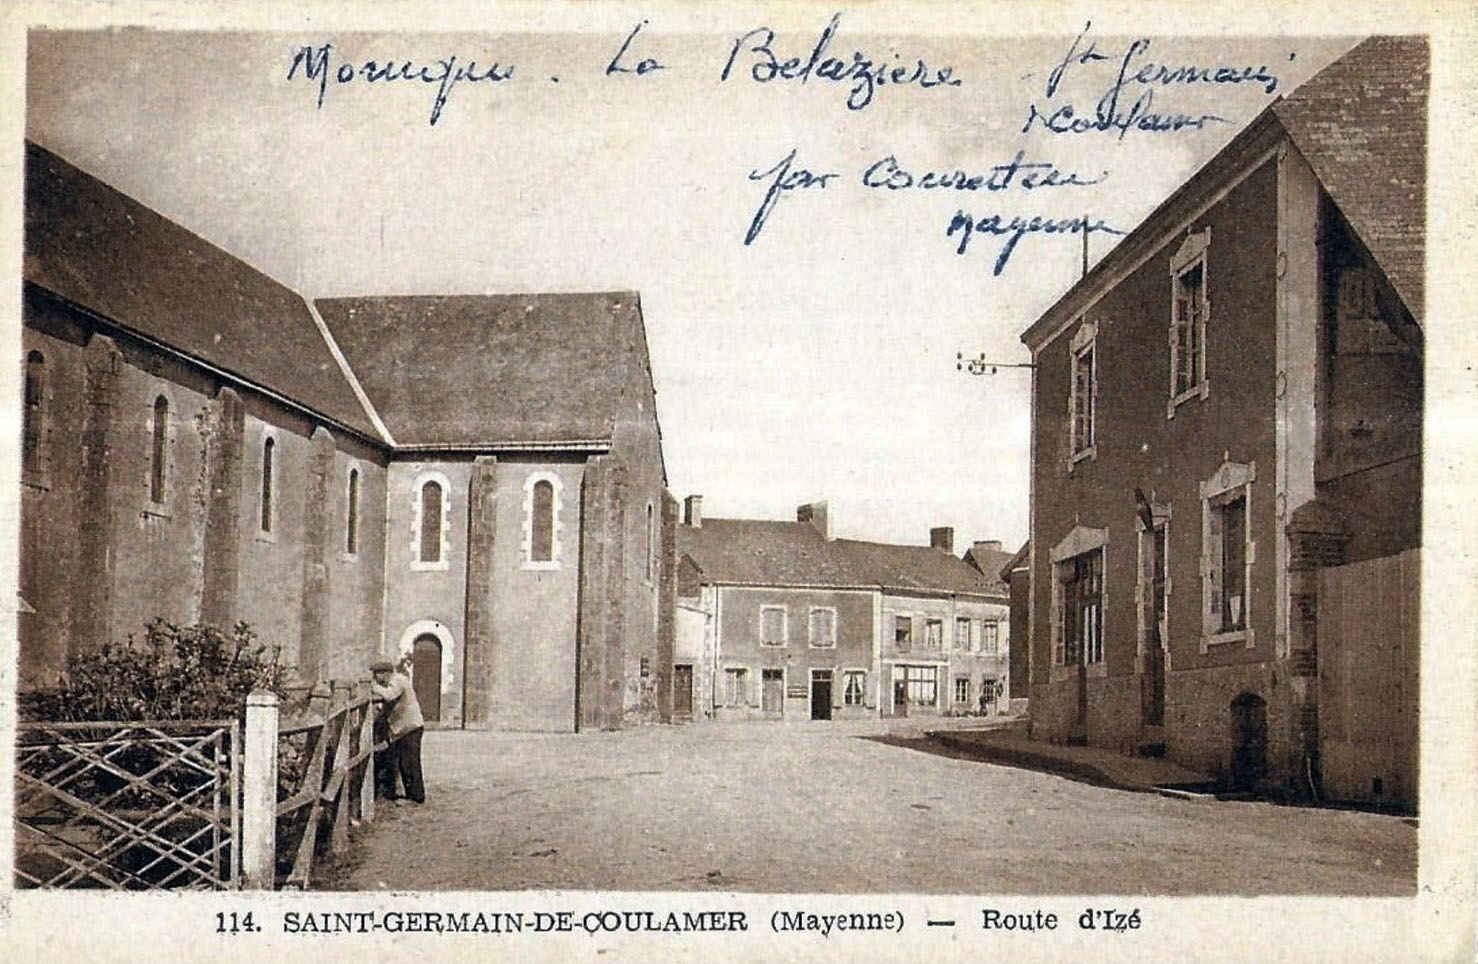 Monique. La Belaziere St Germain
d Coulamer
par Courciteen
Mayenne
114. SAINT-GERMAIN-DE-COULAMER (Mayenne) — Route d'Izé